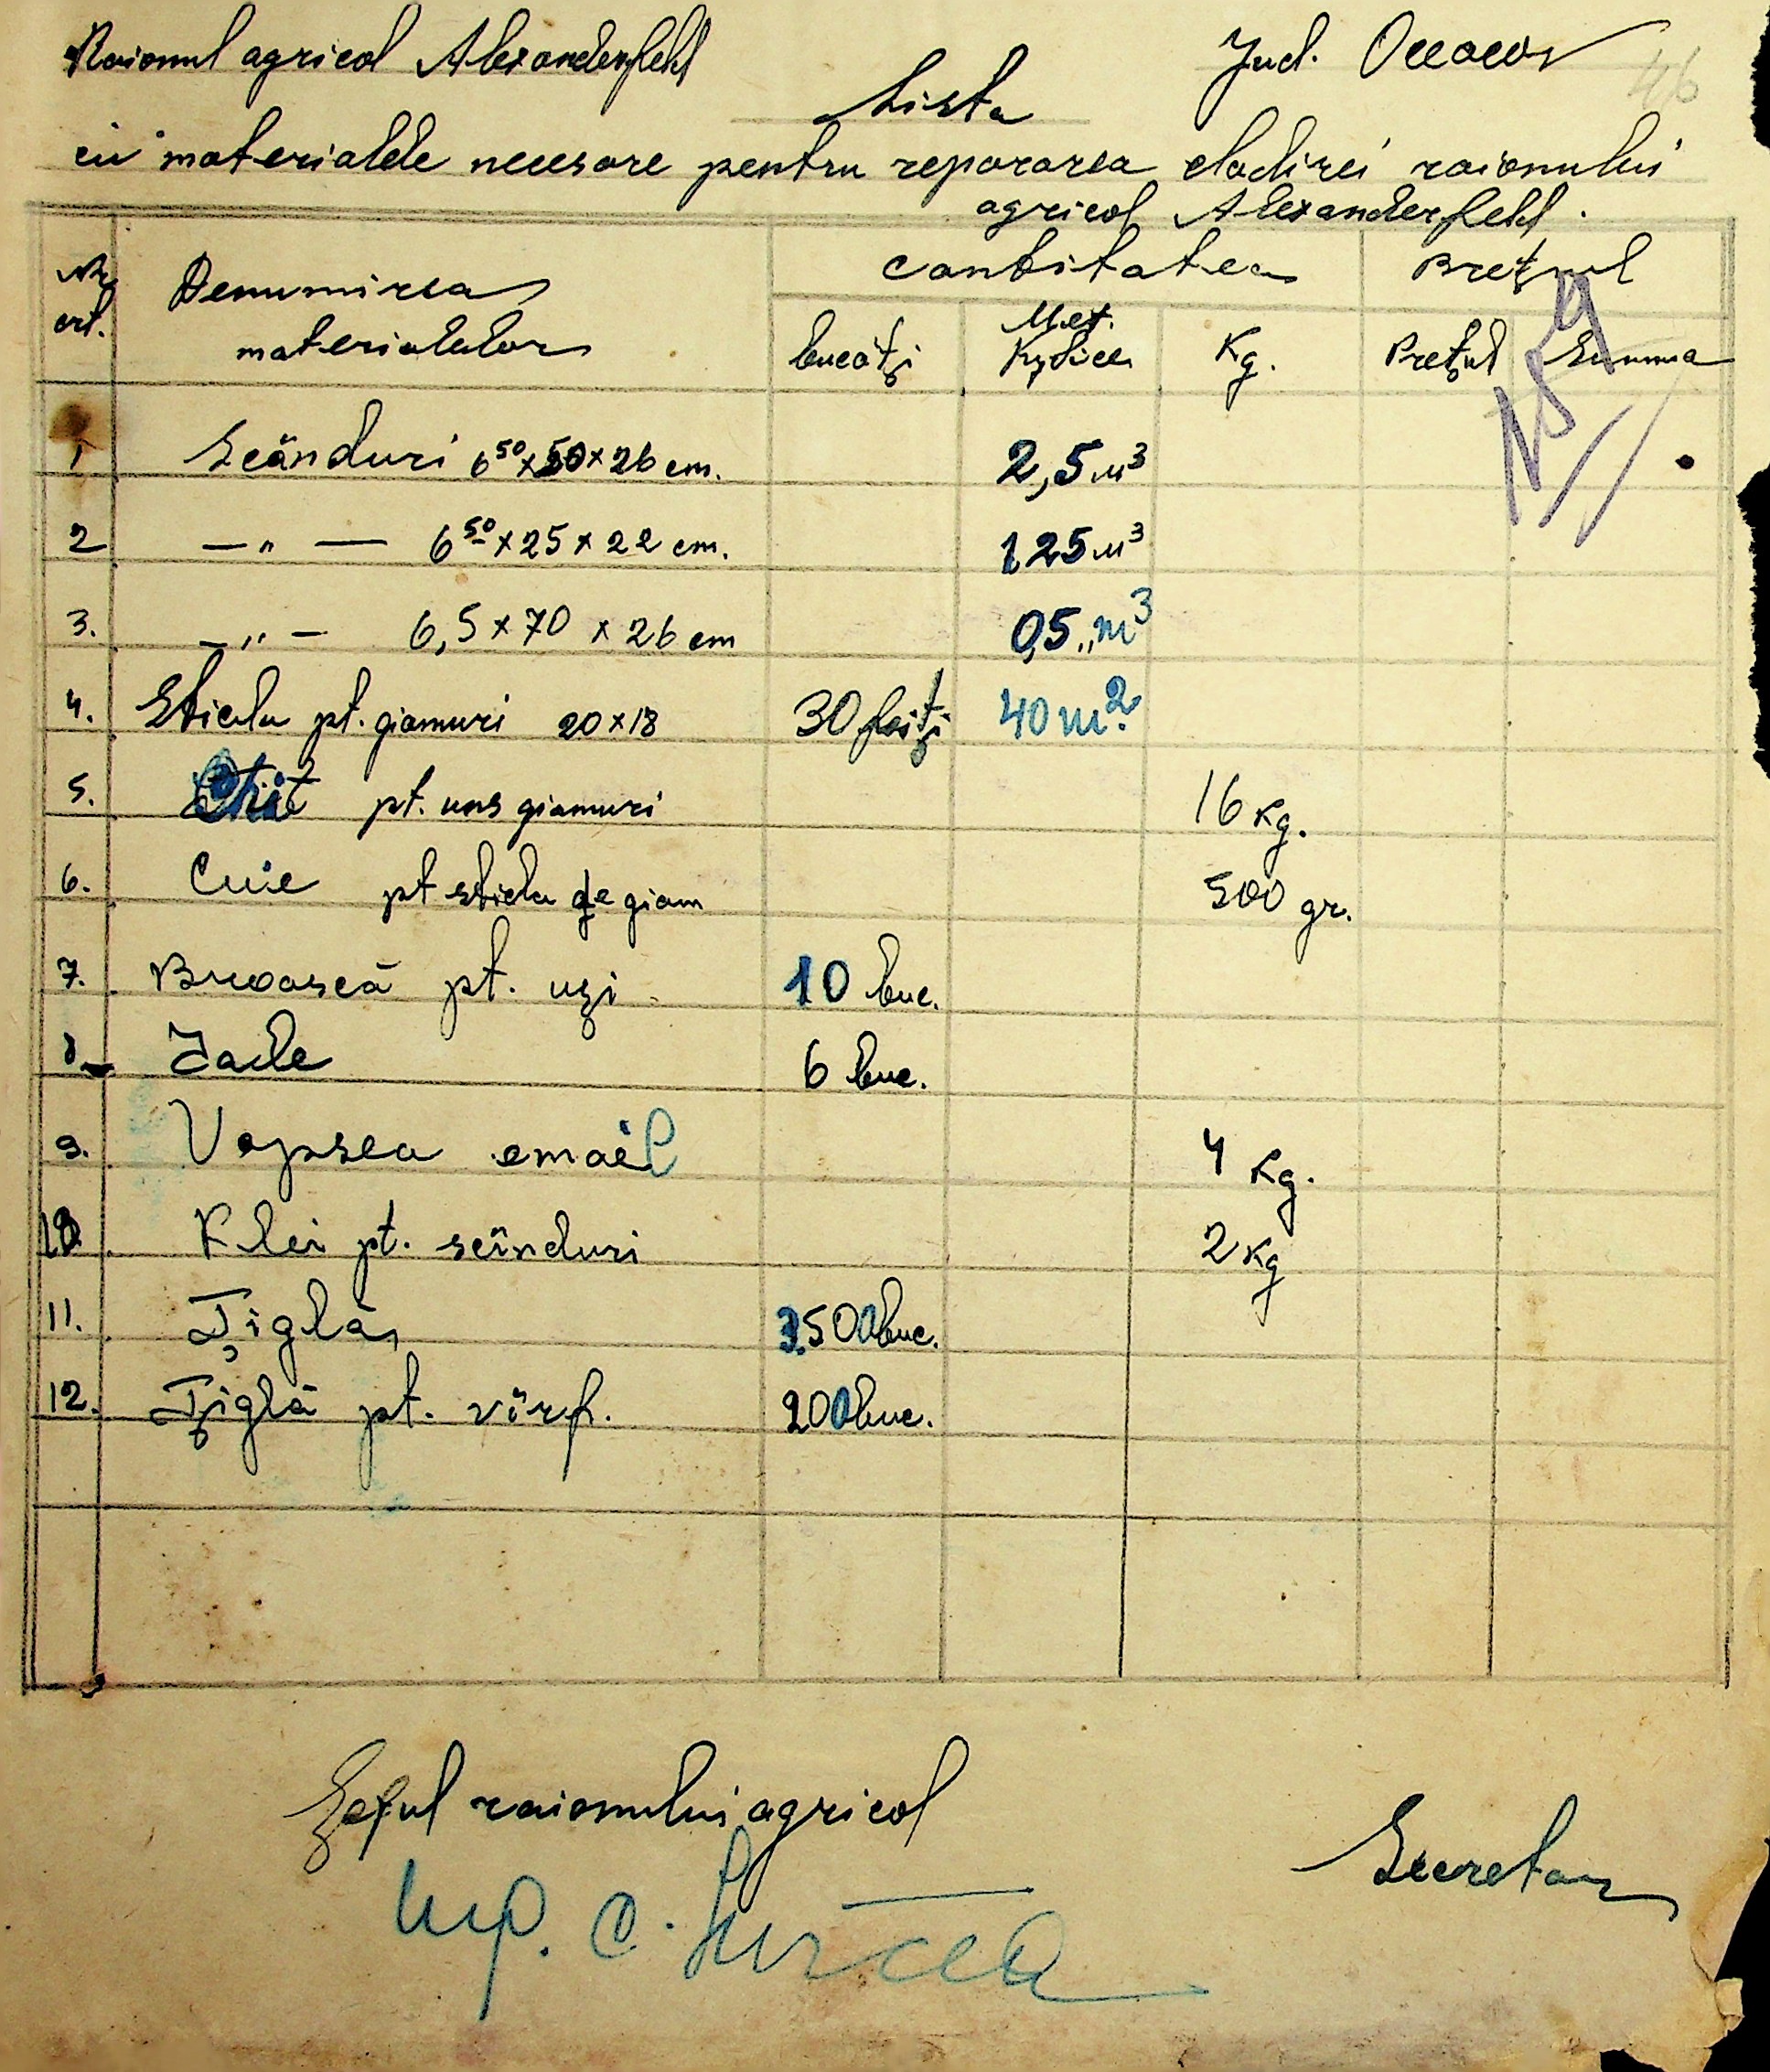 Raionul agricol Alexanderfeld Jud. Oceacov
46
Lista
cu materialele necesare pentru repararea cladirei raionului
agricol Alexanderfeld.
Nr. crt. Denumirea materialelor Cantitatea Prețul
bucăți Met. Kubice Kg. Prețul Summa
1 Scânduri 6⁵⁰×50×26 cm. 2,5 м³
2 —"— 6⁵⁰×25×22 cm. 1,25 м³
3. —"— 6,5×70×26 cm 0,5 „m³
4. Sticla pt. giamuri 20×18 30 foiți 40 m².
5. Chit pt. uns giamuri 16 Kg.
6. Cuie pt sticla de giam 500 gr.
7. Broască pt. uși 10 buc.
8 Zaile 6 buc.
9. Vopsea email 4 Kg.
10 Klei pt. scînduri 2 Kg
11. Țiglă 3.500 buc.
12. Țiglă pt. vîrf. 200 buc.
Șeful raionului agricol Secretar